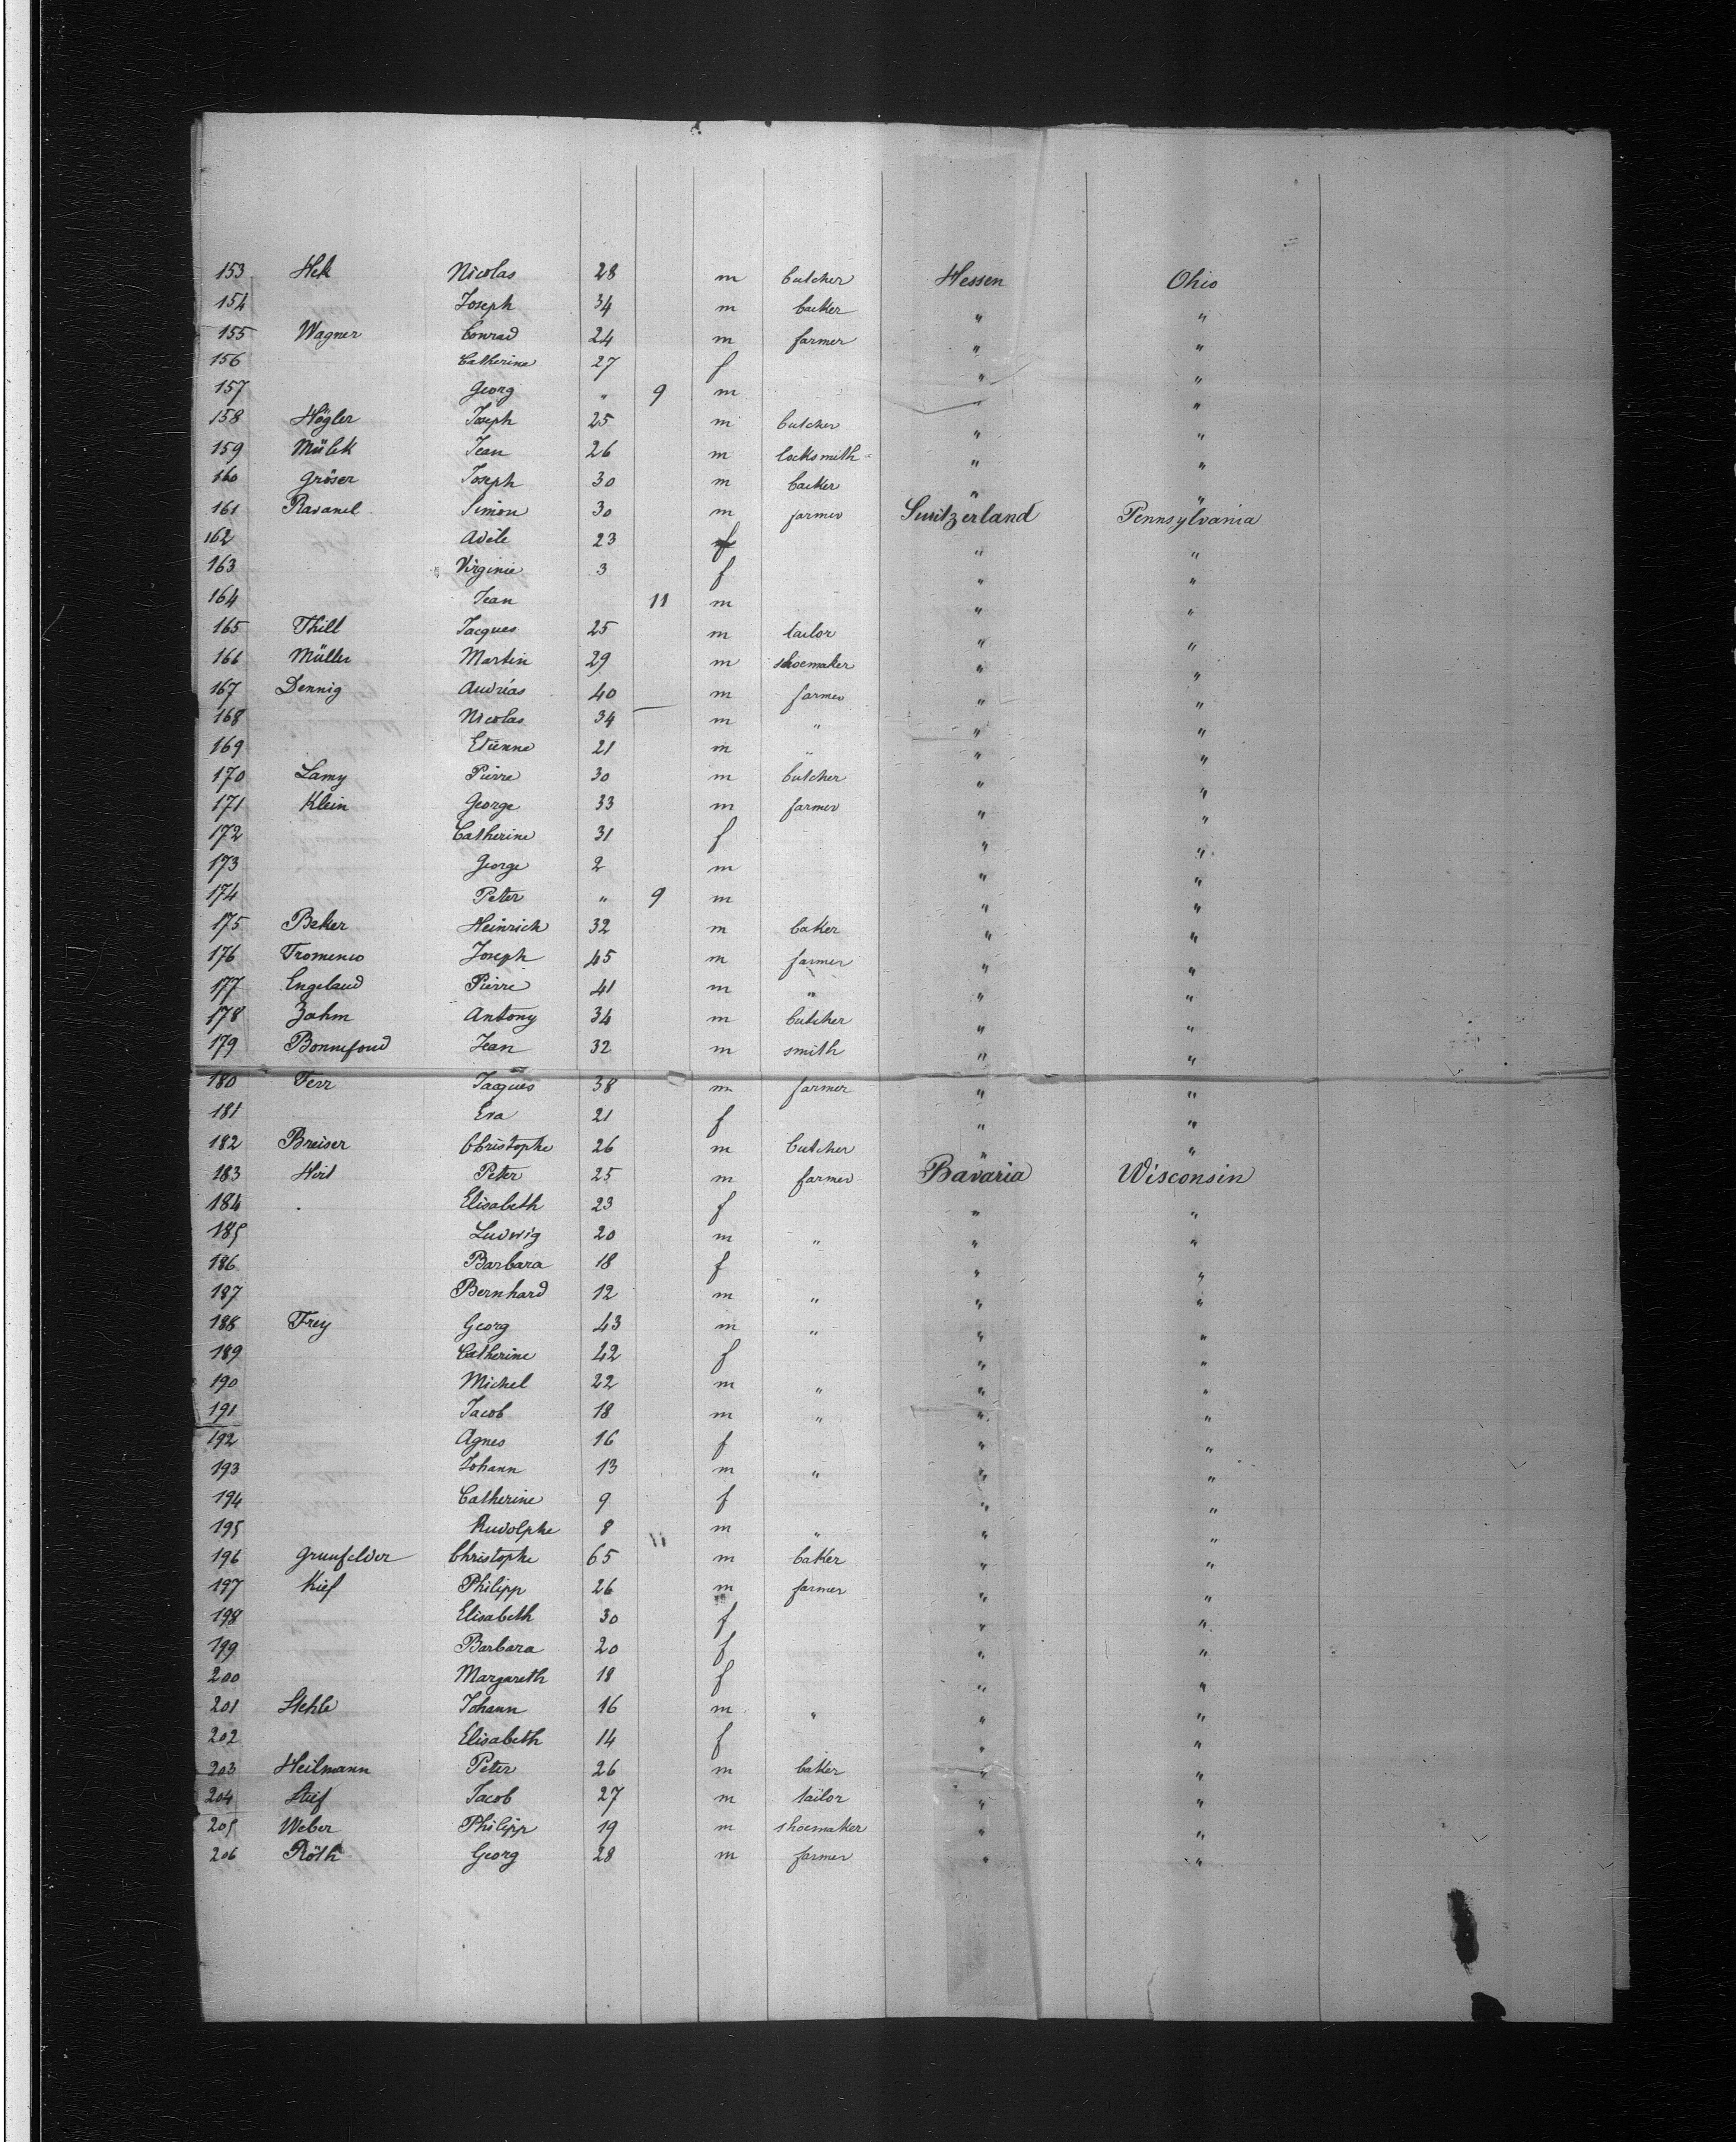 153 Hek Nicolas 28 m butcher Hessen Ohio
154 Joseph 34 m backer " "
155 Wagner Conrad 24 m farmer " "
156 Catherine 27 f " "
157 Georg " 9 m " "
158 Högler Joseph 25 m butcher " "
159 Mülek Jean 26 m locksmith " "
160 Gröser Joseph 30 m backer " "
161 Ravanel Simon 30 m farmer Switzerland Pennsylvania
162 Adele 23 f " "
163 Virginie 3 f " "
164 Jean 11 m " "
165 Thill Jacques 25 m tailor " "
166 Müller Martin 29 m shoemaker " "
167 Dennig Andréas 40 m farmer " "
168 Nicolas 34 m " " "
169 Etienne 21 m " " "
170 Lamy Pierre 30 m butcher " "
171 Klein George 33 m farmer " "
172 Catherine 31 f " "
173 George 2 m " "
174 Peter " 9 m " "
175 Beker Heinrich 32 m baker " "
176 Joseph 45 m farmer " "
177 Engeland Pierre 41 m " " "
178 Zahm Antony 34 m butcher " "
179 Bonnefond Jean 32 m smith " "
180 Ferr Jacques 38 m farmer " "
181 Eva 21 f " "
182 Breiser Christophe 26 m butcher " "
183 Peter 25 m farmer Bavaria Wisconsin
184 Elisabeth 23 f " "
185 Ludwig 20 m " " "
186 Barbara 18 f " "
187 Bernhard 12 m " " "
188 Frey Georg 43 m " " "
189 Catherine 42 f " "
190 Michel 22 m " " "
191 Jacob 18 m " " "
192 Agnes 16 f " "
193 Johann 13 m " " "
194 Catherine 9 f " "
195 Rudolphe 8 m " " "
196 Grunfelder Christophe 65 m baker " "
197 Kief Philipp 26 m farmer " "
198 Elisabeth 30 f " "
199 Barbara 20 f " "
200 Margareth 18 f " "
201 Stehle Johann 16 m " " "
202 Elisabeth 14 f " "
203 Heilmann Peter 26 m baker " "
204 Stief Jacob 27 m tailor " "
205 Weber Philipp 19 m shoemaker " "
206 Röth Georg 28 m farmer " "